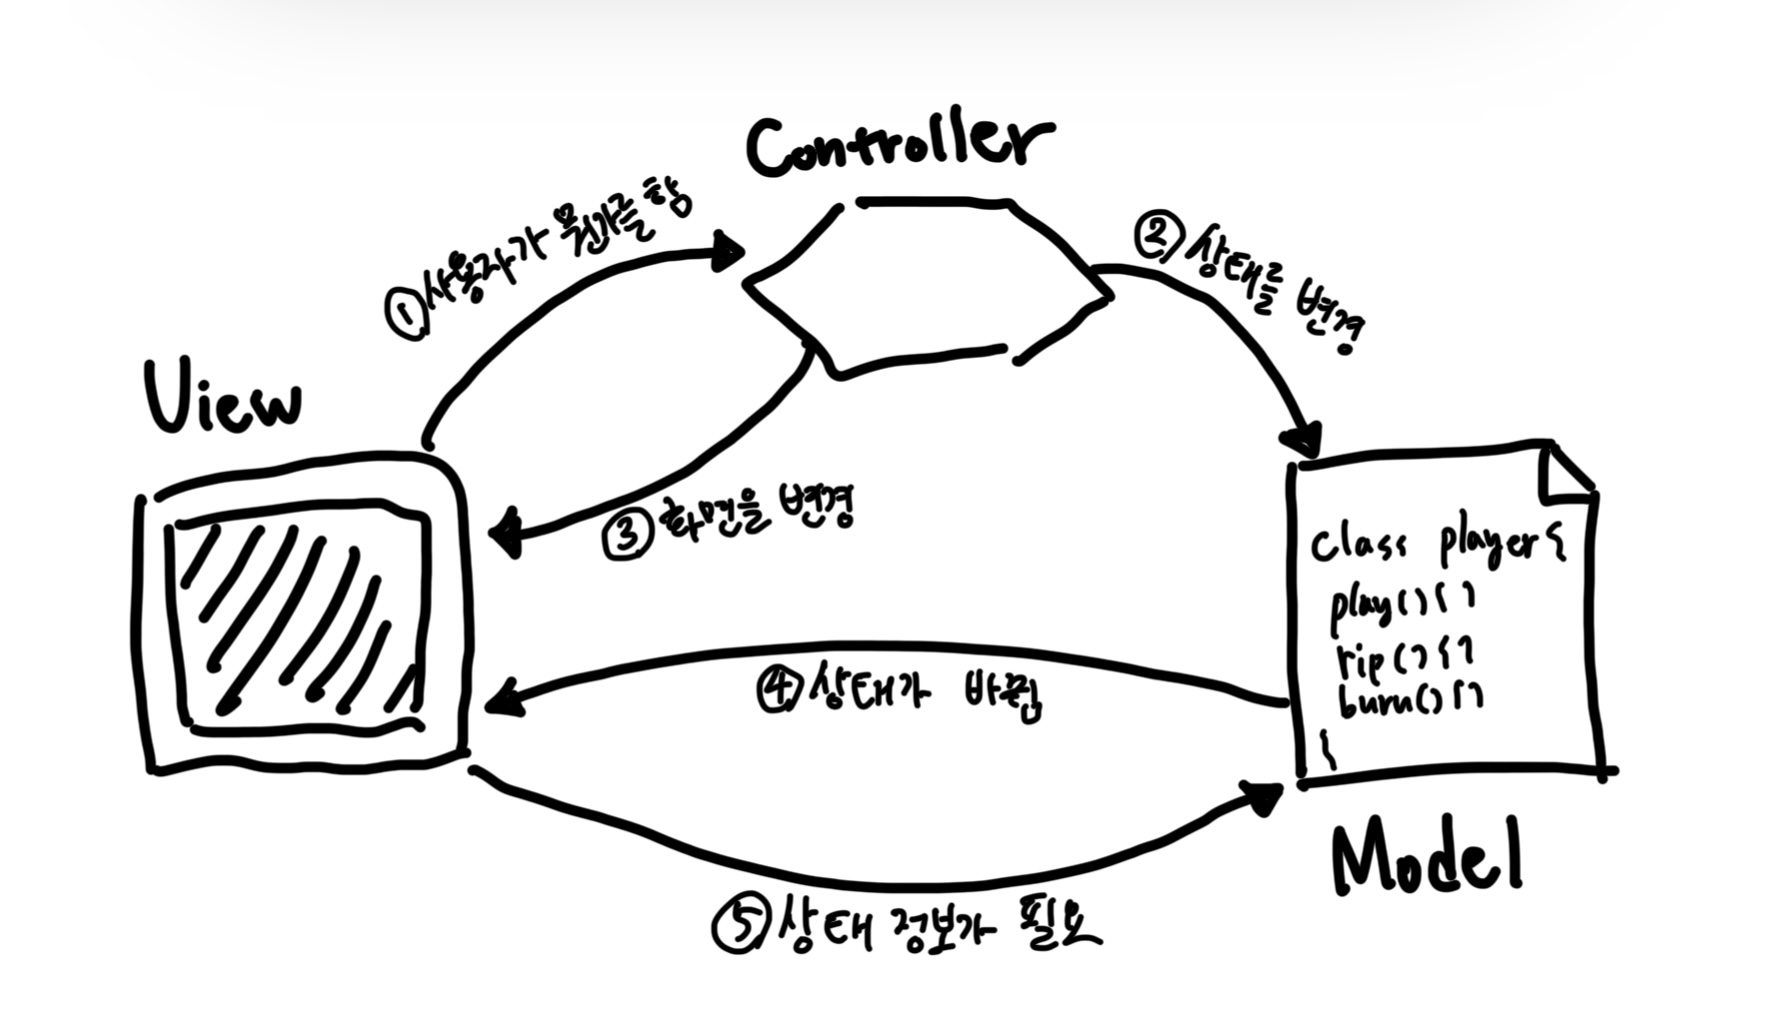 Controller
① 사용자가 뭔가를 함
② 상태를 변경
View
③ 화면을 변경
class player {
play() { }
rip() { }
burn() { }
}
④ 상태가 바뀜
Model
⑤ 상태 정보가 필요